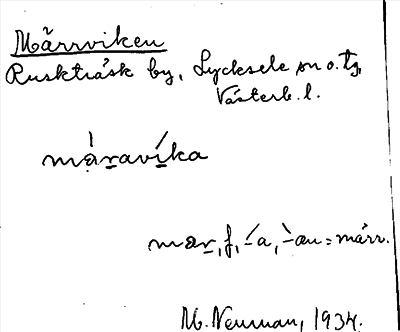 Märrviken
Ruskträsk by, Lycksele sn o. tg,
Västerb. l.
màravíka
mar, f, -́a, -̀an = märr.
M. Neuman, 1934.